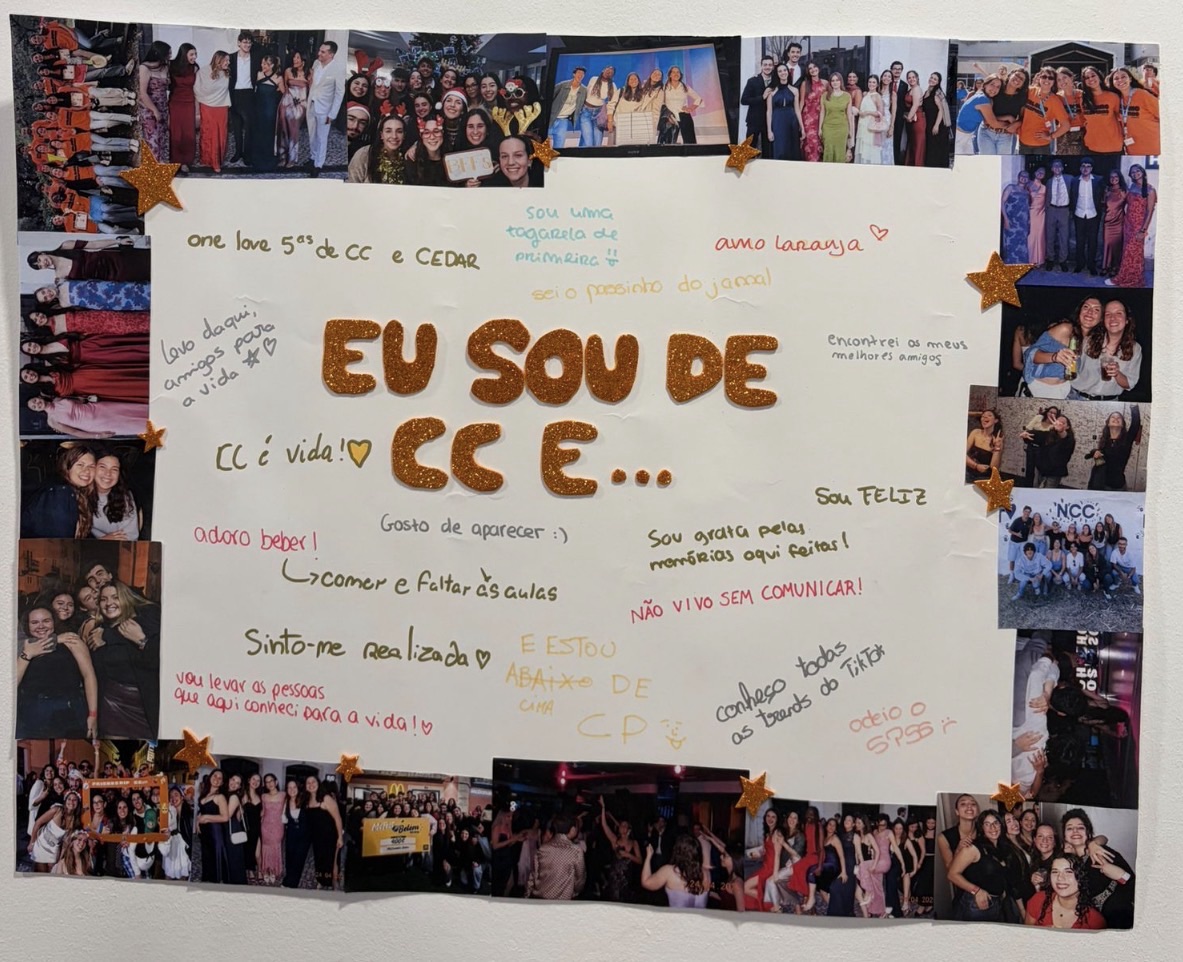 BFFs
one love 5ªs de CC e CEDAR
sou uma
tagarela de
primeira
amo laranja
sei o passinho do jamal
Levo daqui,
amigos para
a vida
EU SOU DE
CC E...
encontrei os meus
melhores amigos
CC é vida!
Sou FELIZ
adoro beber!
Gosto de aparecer :)
Sou grata pelas
memórias aqui feitas!
comer e faltar às aulas
NÃO VIVO SEM COMUNICAR!
NCC
Sinto-me realizada
E ESTOU
ABAIXO DE
CIMA
CP
vou levar as pessoas
que aqui conheci para a vida!
conheso todas
as trends do TikTok
odeio o
SPSS :(
Belém